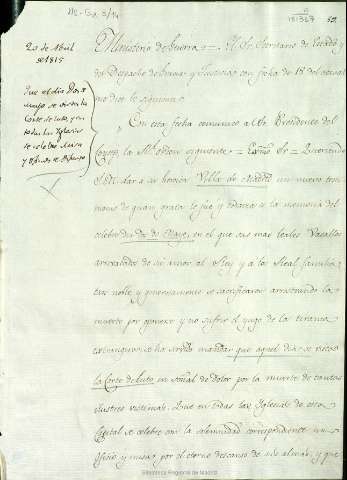 20 de Abril
de 1815
Que el dia Dos de
mayo se vista la
Corte de luto, y en
todas las Yglesias
se celebre Misa
y oficio de Difuntos
Ministerio de Guerra = El Sr. Secretario de Estado y
del Despacho de Gracia y Justicia con fecha de 18 del actual
me dice lo siguiente
Con esta fecha comunico al Presidente del
Consejo la Rl. orden siguiente = Exmo. Sr. = Queriendo
S.M. dar a su heroica Villa de Madrid un nuevo testi-
monio de quan grata le fue y todavia la memoria del
celebre dia dos de Mayo, en el que sus mas leales Vasallos
arrastrados de su amor al Rey y a la Real familia,
tan noble y generosamente se sacrificaron arrostrando la
muerte por oponerse y no sufrir el yugo de la tirania
extrangera; se ha servido mandar que aquel dia se vista
la Corte de luto en señal de dolor por la muerte de tantas
ilustres victimas: Que en todas las Yglesias de esta
Capital se celebre con la solemnidad correspondiente un
oficio y misas por el eterno descanso de sus almas, y que
Biblioteca Regional de Madrid